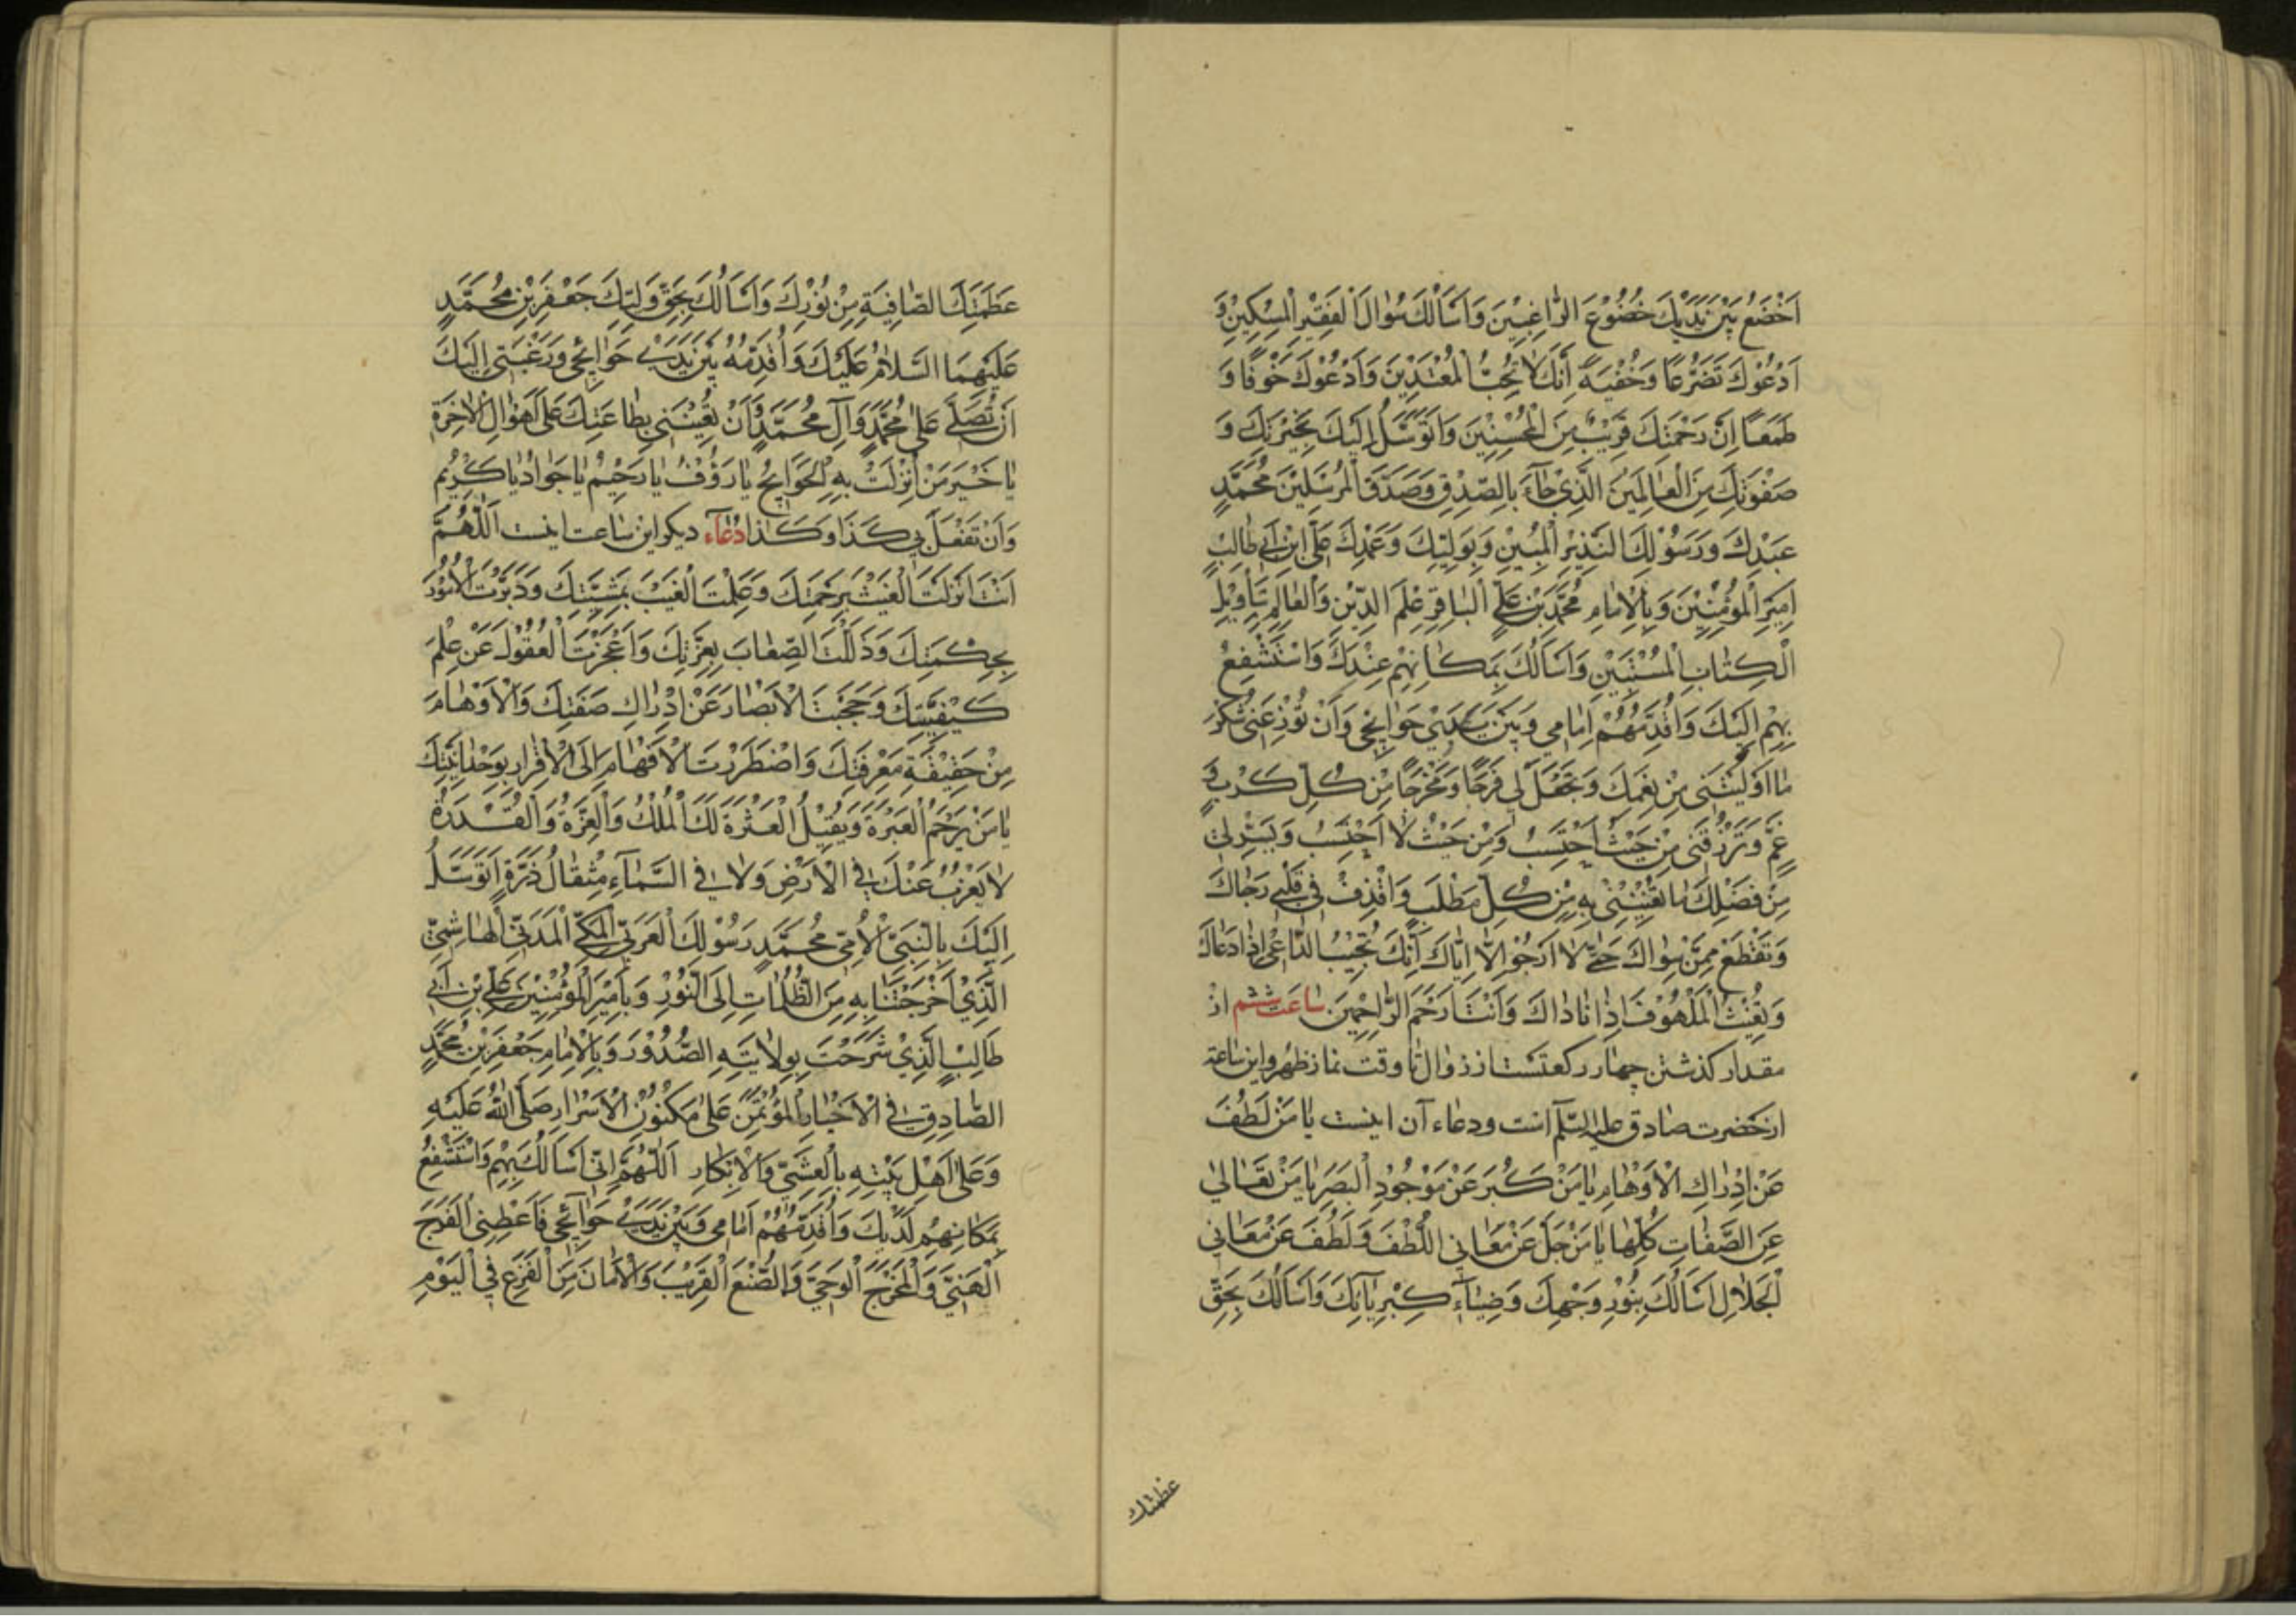 اَخْضَعُ بَيْنَ يَدَيْكَ خُضُوْعَ الرّٰاغِبيْنَ وَاَسَاَلُكَ سُوٰالَ الْفَقيْرِ الْمِسْكِيْنِ وَ
اَدْعُوْكَ تَضَرُّعًا وَخُفْيَةً اِنَّكَ لاٰ تُحِبُّ الْمُعْتَدِيْنَ وَاَدْعُوْكَ خَوْفًا وَ
طَمَعًا اِنَّ رَحْمَتَكَ قَريْبٌ مِنَ الْمُحْسِنِيْنَ وَاَتَوَسَّلُ اِلَيْكَ بِخِيَرَتِكَ وَ
صَفْوَتِكَ مِنَ الْعٰالَمِيْنَ الَّذِيْ جٰآءَ بِالصِّدْقِ وَصَدَّقَ الْمُرْسَلِيْنَ مُحَمَّدٍ
عَبْدِكَ وَرَسُوْلِكَ النَّذِيْرِ الْمُبِيْنِ وَبِوَلِيِّكَ وَعَبْدِكَ عَلِيِّ ابْنِ اَبي طٰالِبٍ
اَمِيْرِ الْمُؤْمِنيْنَ وَبِالْاِمٰامِ مُحَمَّدِ بْنِ عَلِيٍّ الْبٰاقِرِ عِلْمَ الدّيْنِ وَالْعٰالِمِ بِتَأْوِيْلِ
الْكِتٰابِ الْمُسْتَبِيْنِ وَاَسَاَلُكَ بِمَكٰانِهِمْ عِنْدَكَ وَاَسْتَشْفِعُ
بِهِمْ اِلَيْكَ وَاُقَدِّمُهُمْ اَمٰامي وَبَيْنَ يَدَيْ حَوٰائِجي وَاَنْ تُوْزِعَني شُكْرَ
مٰا اَوْلَيْتَني مِنْ نِعَمِكَ وَتَجْعَلَ لي فَرَجًا وَمَخْرَجًا مِنْ كُلِّ كَرْبٍ وَ
غَمٍّ وَتَرْزُقَني مِنْ حَيْثُ اَحْتَسِبُ وَمِنْ حَيْثُ لاٰ اَحْتَسِبُ وَيَسِّرْ لي
مِنْ فَضْلِكَ مٰا تُغْنِيْنِيْ بِهِ مِنْ كُلِّ مَطْلَبٍ وَاقْذِفْ في قَلْبي رَجٰاكَ
وَتَقْطَعْ مِمَّنْ سِوٰاكَ حَتّٰى لاٰ اَرْجُوْ اِلاّٰ اِيّٰاكَ اِنَّكَ تُجيْبُ الدّٰاعيَ اِذٰا دَعٰاكَ
وَتُغيْثُ الْمَلْهُوْفَ اِذٰا نٰادٰاكَ وَاَنْتَ اَرْحَمُ الرّٰاحِميْنَ ساعَت ششم از
مقدار كذشتن چهار ركعتست از زوال تا وقت نماز ظهر واين ساعة
از حضرت صادق عليه السّلم است ودعاء آن اينست يٰا مَنْ لَطُفَ
عَنْ اِدْرٰاكِ الْاَوْهٰامِ يٰا مَنْ كَبُرَ عَنْ مَوْجُوْدِ الْبَصَرِ يٰا مَنْ تَعٰالٰي
عَنِ الصِّفٰاتِ كُلِّهٰا يٰا مَنْ جَلَّ عَنْ مَعٰاني اللُّطْفِ وَلَطُفَ عَنْ مَعٰاني
الْجَلاٰلِ اَسَاَلُكَ بِنُوْرِ وَجْهِكَ وَضِيٰآءِ كِبْرِيٰآئِكَ وَاَسَاَلُكَ بِحَقِّ
عظمتك
عَظَمَتِكَ الصّٰافِيَةِ مِنْ نُوْرِكَ وَاَسَاَلُكَ بِحَقِّ وَلِيِّكَ جَعْفَرِ بْنِ مُحَمَّدٍ
عَلَيْهِمَا السَّلاٰمُ عَلَيْكَ وَاُقَدِّمُهُ بَيْنَ يَدَيْ حَوٰائِجي وَرَغْبَتي اِلَيْكَ
اَنْ تُصَلِّيَ عَلٰى مُحَمَّدٍ وَآلِ مُحَمَّدٍ وَاَنْ تُعيْنَني بِطٰاعَتِكَ عَلٰى اَهْوٰالِ الْاٰخِرَةِ
يٰا خَيْرَ مَنْ اُنْزِلَتْ بِهِ الْحَوٰائِجُ يٰا رَؤُفُ يٰا رَحيْمُ يٰا جَوٰادُ يٰا كَرِيْمُ
وَاَنْ تَفْعَلَ بي كَذٰا وَكَذٰا دُعٰآء ديكر اين ساعت اينست اَللّٰهُمَّ
اَنْتَ اَنْزَلْتَ الْغَيْثَ بِرَحْمَتِكَ وَعَلِمْتَ الْغَيْبَ بِمَشِيَّتِكَ وَدَبَّرْتَ الْاُمُوْرَ
بِحِكْمَتِكَ وَذَلَّلْتَ الصِّعٰابَ بِعِزَّتِكَ وَاَعْجَزْتَ الْعُقُوْلَ عَنْ عِلْمِ
كَيْفِيَّتِكَ وَحَجَبْتَ الْاَبْصٰارَ عَنْ اِدْرٰاكِ صِفَتِكَ وَالْاَوْهٰامَ
مِنْ حَقيْقَةِ مَعْرِفَتِكَ وَاضْطَرَرْتَ الْاَفْهٰامَ اِلَى الْاِقْرٰارِ بِوَحْدٰانِيَّتِكَ
يٰا مَنْ يَرْحَمُ الْعَبْرَةَ وَيُقيْلُ الْعَثْرَةَ لَكَ الْمُلْكُ وَالْعِزَّةُ وَالْقُدْرَةُ
لاٰ يَعْزُبُ عَنْكَ فِي الْاَرْضِ وَلاٰ فِي السَّمٰآءِ مِثْقٰالُ ذَرَّةٍ اَتَوَسَّلُ
اِلَيْكَ بِالنَّبِيِّ الْاُمِّيِّ مُحَمَّدٍ رَسُوْلِكَ الْعَرَبِيِّ الْمَكِّيِّ الْمَدَنِيِّ الْهٰاشِمِيِّ
الَّذِيْ اَخْرَجْتَنٰا بِهِ مِنَ الظُّلُمٰاتِ اِلَى النُّوْرِ وَبِاَمِيْرِ الْمُؤْمِنِيْنَ عَلِيِّ بْنِ اَبي
طٰالِبٍ الَّذِيْ شَرَحْتَ بِوِلاٰيَتِهِ الصُّدُوْرَ وَبِالْاِمٰامِ جَعْفَرِ بْنِ مُحَمَّدٍ
الصّٰادِقِ فِي الْاَخْبٰارِ الْمُؤْتَمَنِ عَلٰى مَكْنُوْنِ الْاَسْرٰارِ صَلَّى اللّٰهُ عَلَيْهِ
وَعَلٰى اَهْلِ بَيْتِهِ بِالْعَشِيِّ وَالْاِبْكٰارِ اَللّٰهُمَّ اِنّي اَسَاَلُكَ بِهِمْ وَاَسْتَشْفِعُ
بِمَكٰانِهِمْ لَدَيْكَ وَاُقَدِّمُهُمْ اَمٰامي وَبَيْنَ يَدَيْ حَوٰآئِجي فَاَعْطِنِي الْفَرَجَ
الْهَنِيَّ وَالْمَخْرَجَ الْوَحِيَّ وَالصُّنْعَ الْقَرِيْبَ وَالْاَمٰانَ مِنَ الْفَزَعِ في الْيَوْمِ